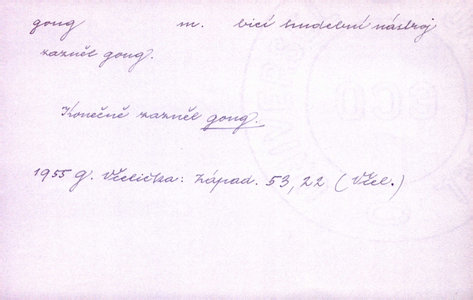 gong m. bicí hudební nástroj
zazněl gong.
Konečně zazněl gong.
1955 G. Včelička: Západ. 53, 22 (Včel.)